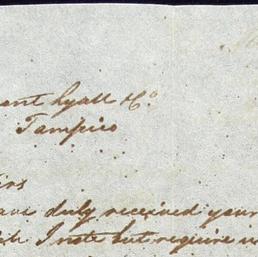 ant Lyall & Co
Tampico
irs
ave duly received your
ich I note but require